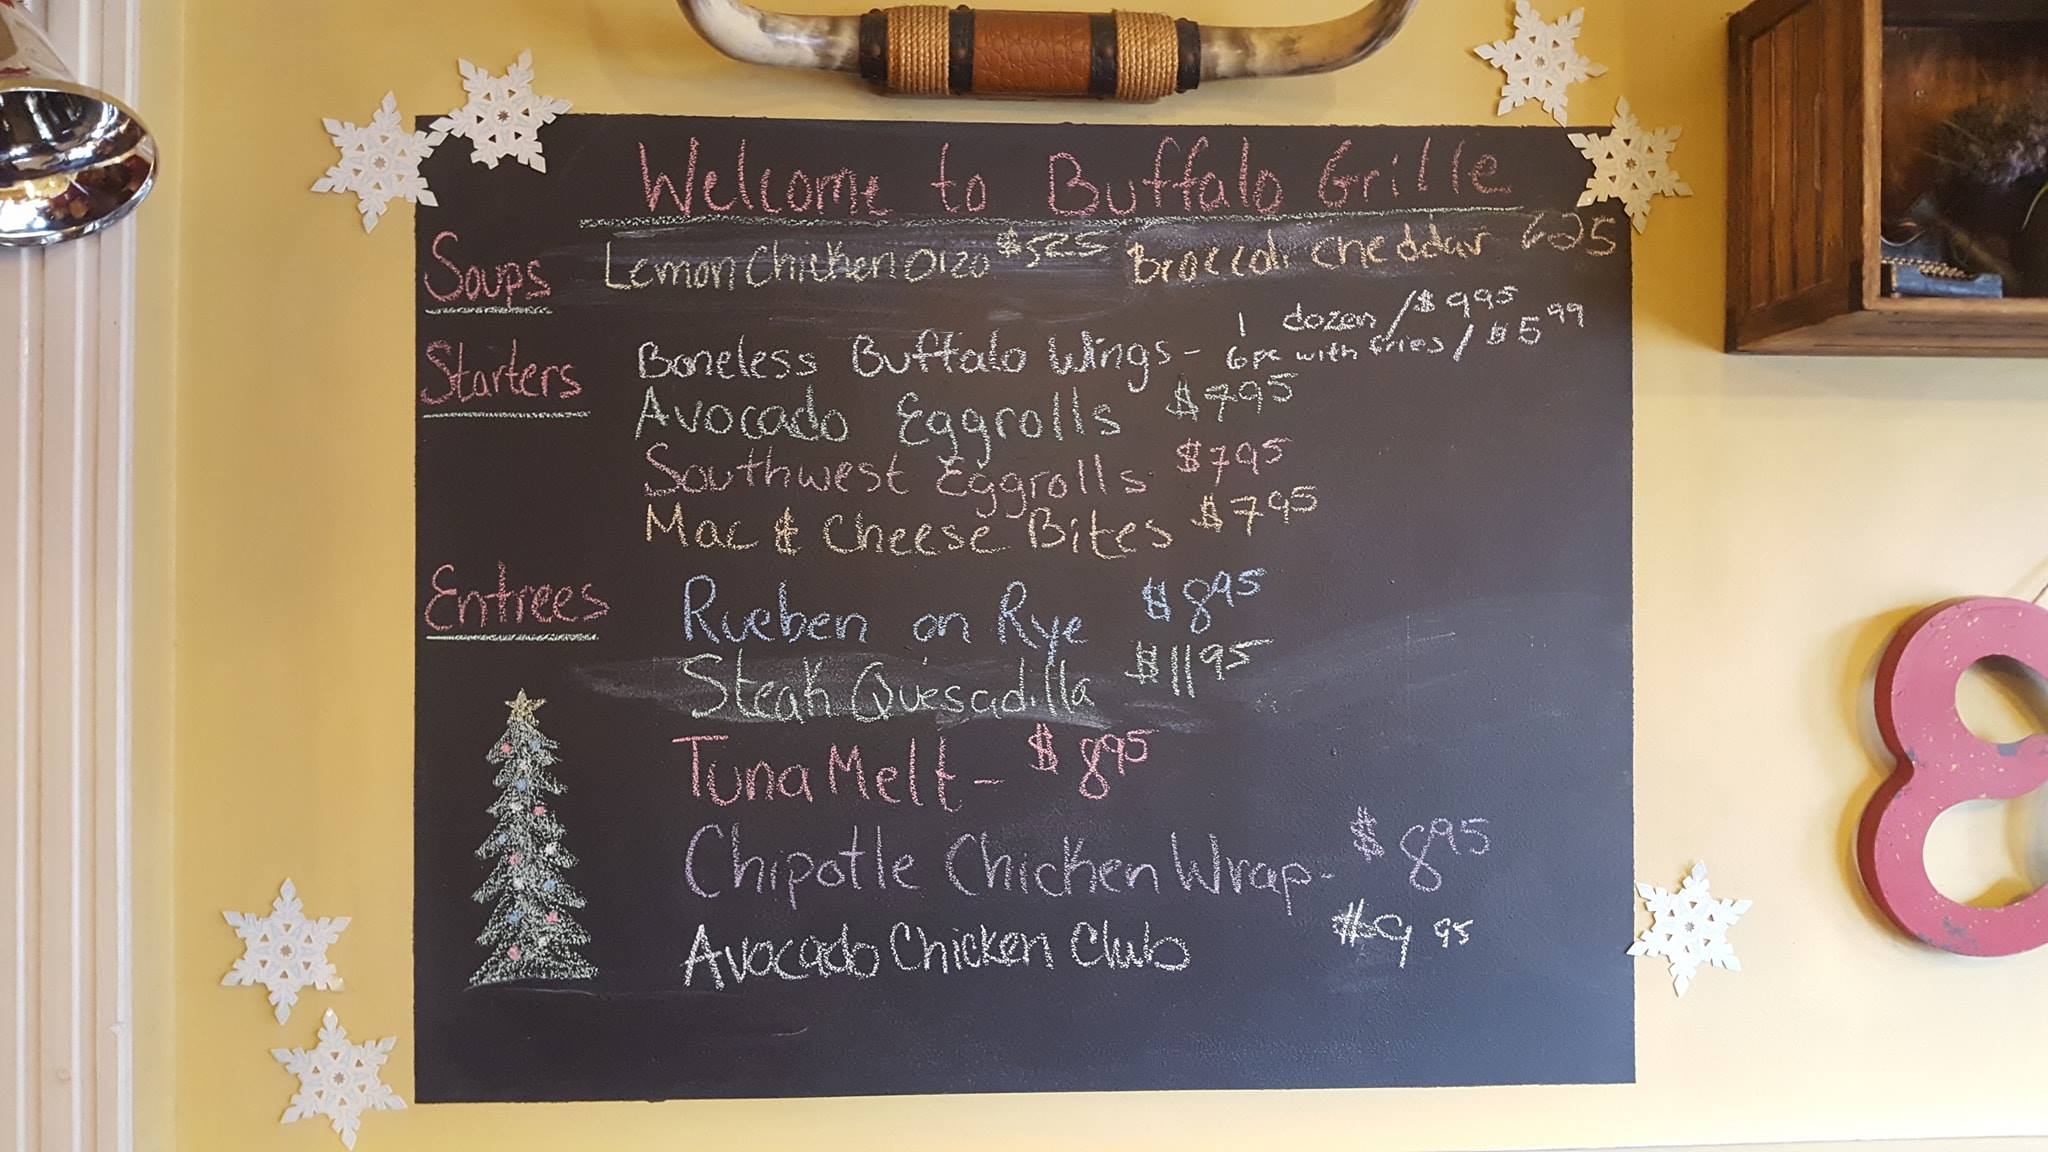 Welcome to Buffalo Grille
Soups Lemon Chicken Orzo $525 Broccoli Cheddar 625
Starters Boneless Buffalo Wings - 1 dozen / $995
6pc with fries / $599
Avocado Eggrolls $795
Southwest Eggrolls $795
Mac & Cheese Bites $795
Entrees Rueben on Rye $895
Steak Quesadilla $1195
Tuna Melt - $895
Chipotle Chicken Wrap - $895
Avocado Chicken Club $995
8